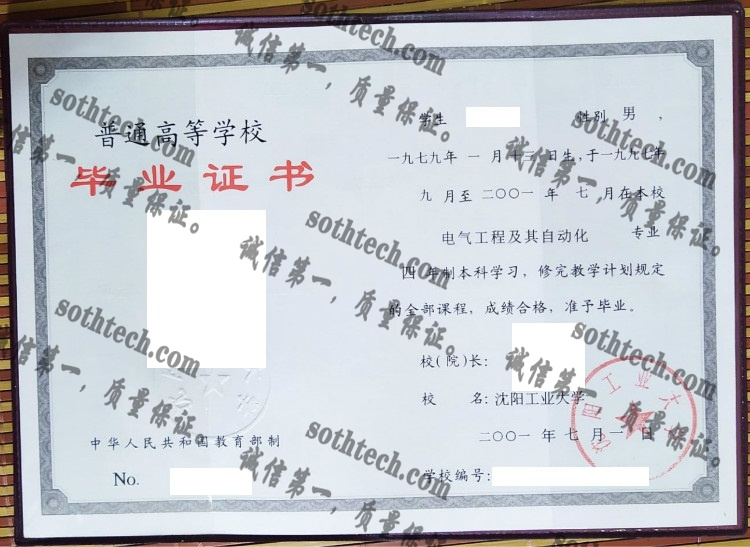 普通高等学校
毕业证书
中华人民共和国教育部制
No.
学生 性别 男 ,
一九七九年 一 月十三日生,于一九九七年
九 月至 二〇〇一 年 七 月在本校
电气工程及其自动化 专业
四 年制本科学习，修完教学计划规定
的全部课程，成绩合格，准予毕业。
校(院)长:
校 名:沈阳工业大学
二〇〇一 年 七 月 一 日
学校编号:
沈阳工业大学
sothtech.com
诚信第一，质量保证。
sothtech.com
诚信第一，质量保证。
sothtech.com
诚信第一，质量保证。
sothtech.com
诚信第一，质量保证。
sothtech.com
诚信第一，质量保证。
sothtech.com
诚信第一，质量保证。
sothtech.com
诚信第一，质量保证。